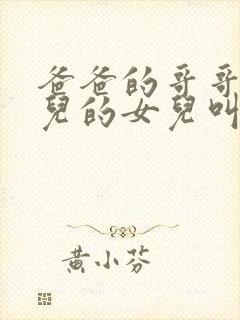 爸爸的哥哥
兒的女兒叫
黃小芬